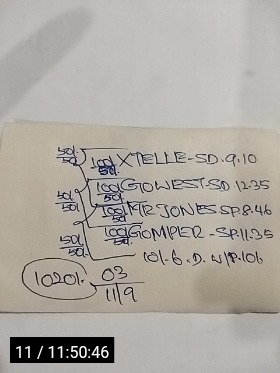 50/.
50/. 100/. XTELLE-SD.9.10
50/.
100/. GOWEST-SD.12.35
50/.
50/. 50/.
100/. MR JONES SP.8.46
50/.
50/. 100/. GOMPIER-SP.11.35
50/. 50/.
10/. 6. D. W/P. 106
1020/. 03
11/9
11 / 11:50:46